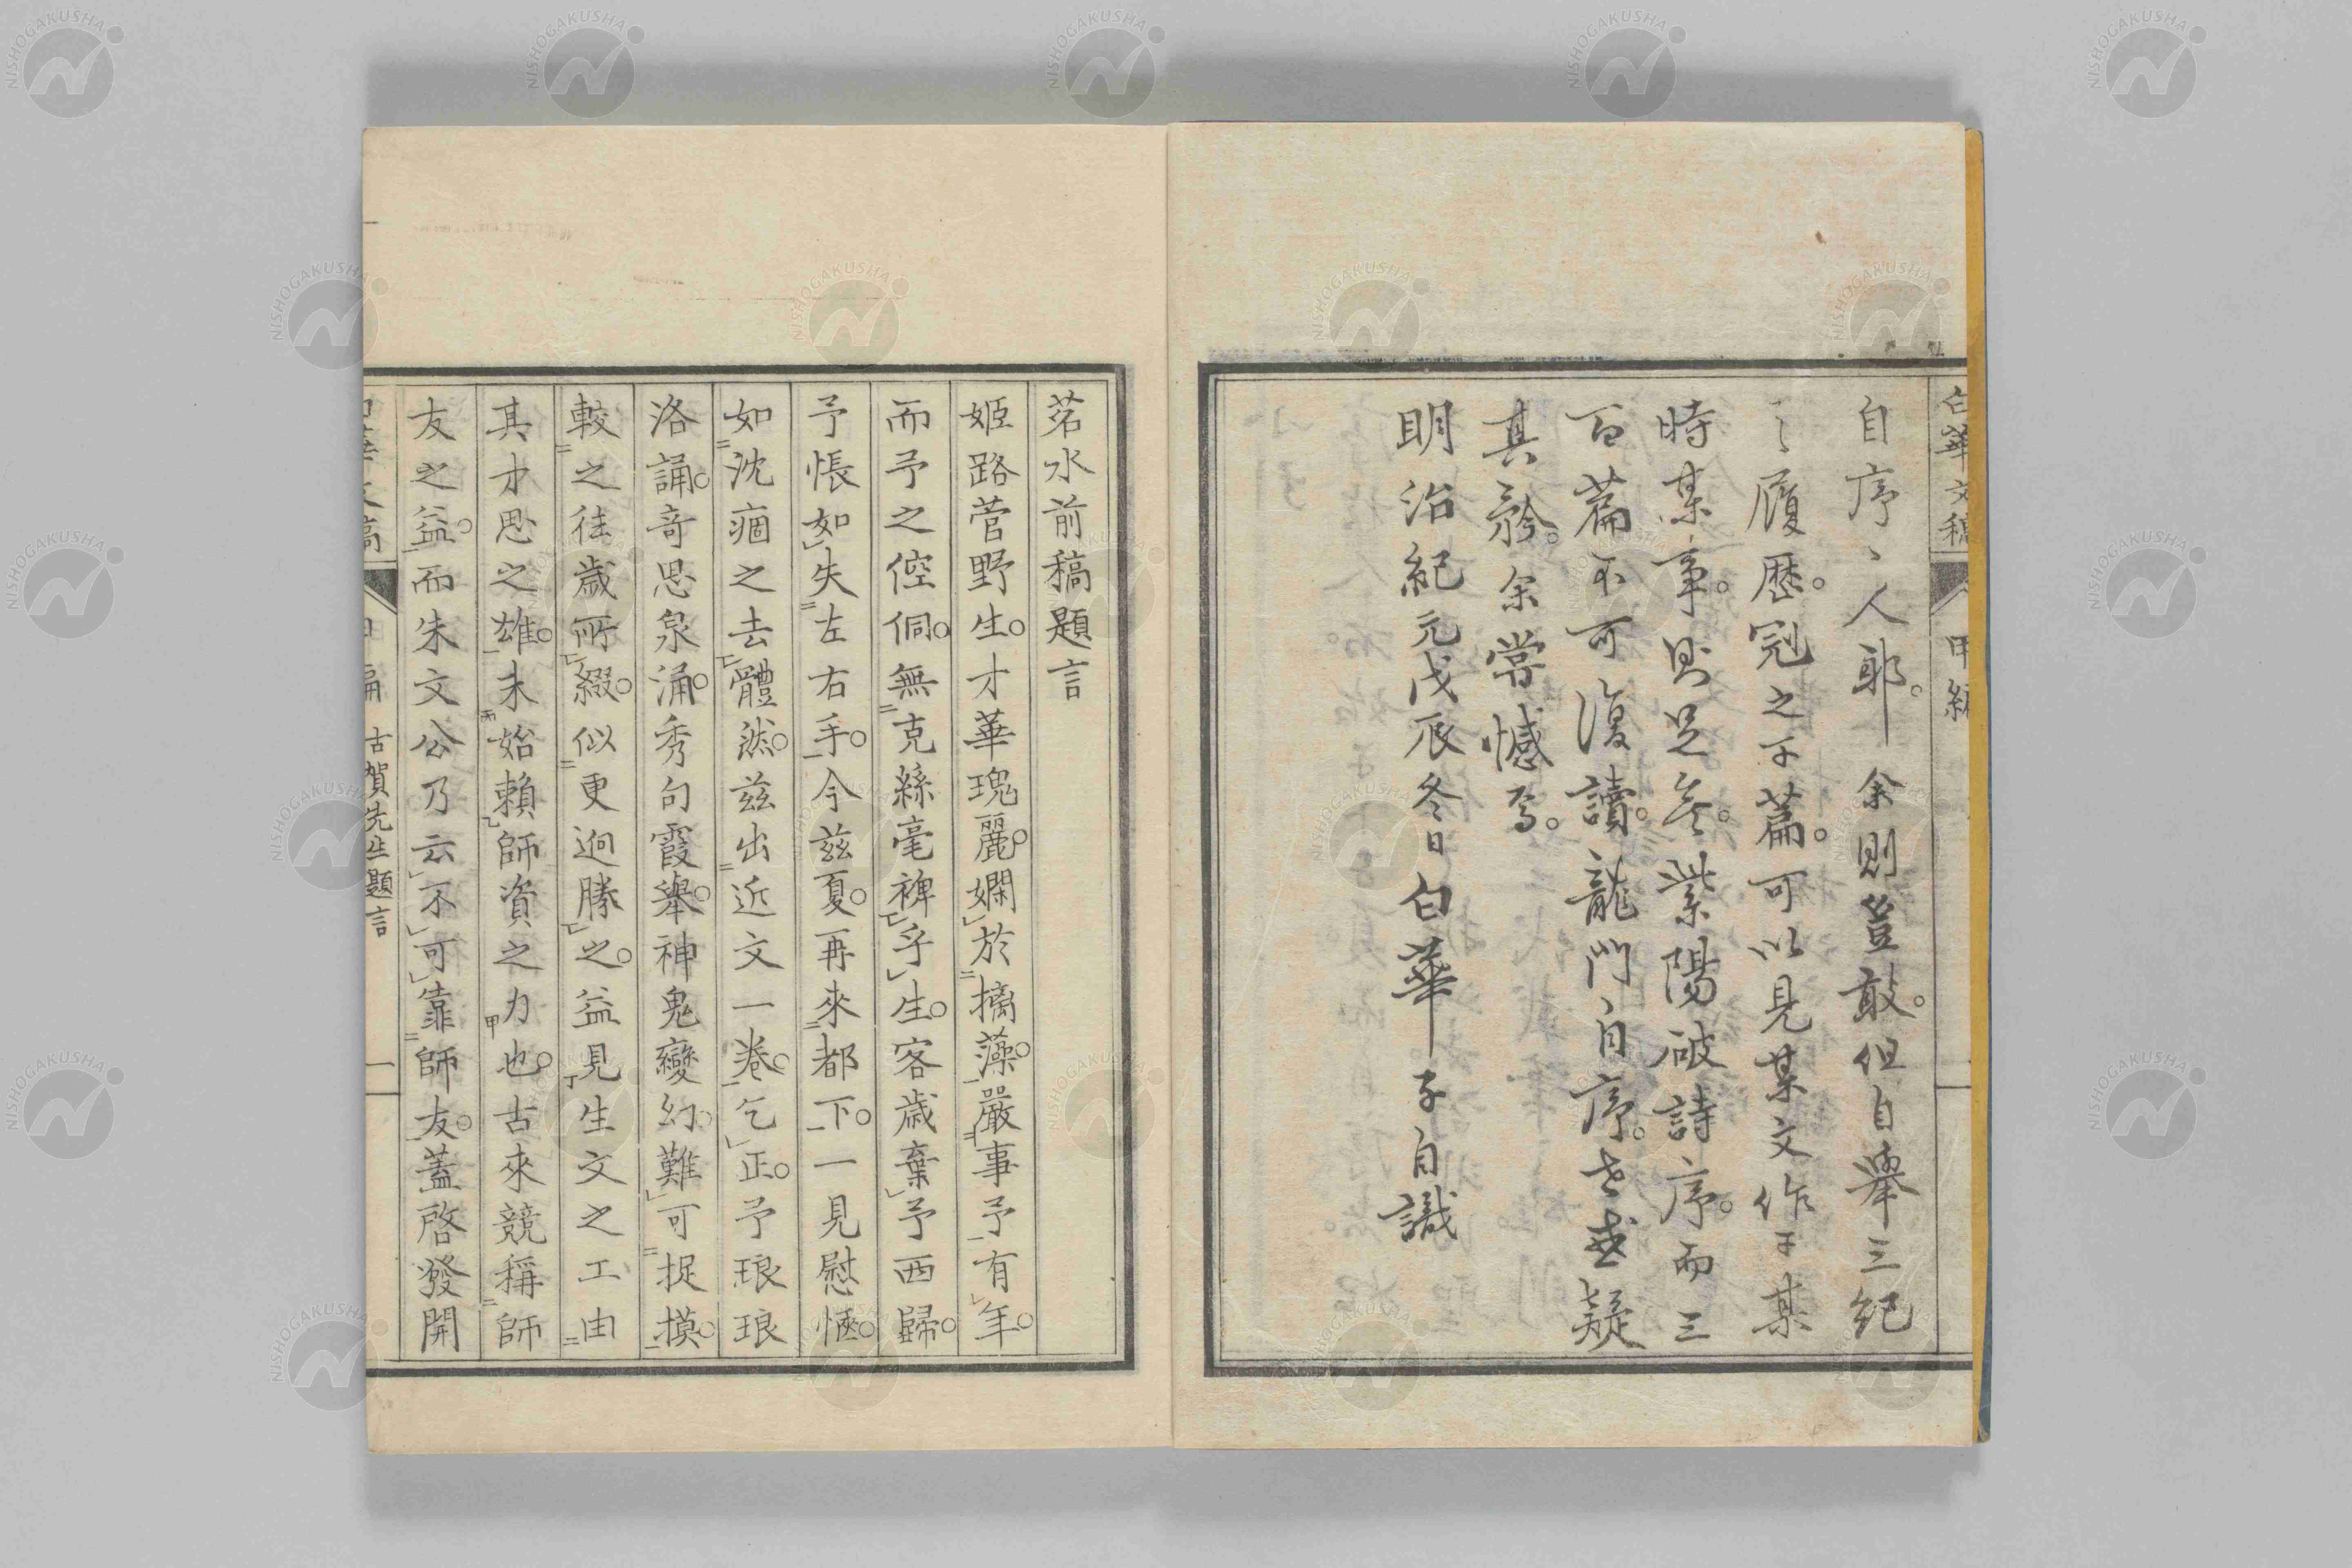 白華文稿 甲編
自序〻人耶。余則豈敢。但自舉三紀
之履歴。冠之于篇。可以見某文作于某
時某事。則足矣。紫陽破詩序。而三
百篇不可復讀。龍門自序。世或疑
其矜。余嘗憾焉。
明治紀元戊辰冬日白華子自識
茗水前稿題言
姬路菅野生。才華瑰麗。嫻於摛藻。嚴事予有年。
而予之倥侗。無克絲毫裨乎生。客歳棄予西歸。
予悵如失左右手。今茲夏。再來都下。一見慰愜。
如沈痼之去體然。茲出近文一卷。乞正。予琅琅
洛誦。奇思泉涌。秀句霞舉。神鬼變幻。難可捉摸。
較之往歳所綴。似更迥勝之。益見生文之工。由
其才思之雄。未始賴師資之力也。古來競稱師
友之益。而朱文公乃云不可靠師友。蓋啓發開
古賀先生題言 一
NISHOGAKUSHA